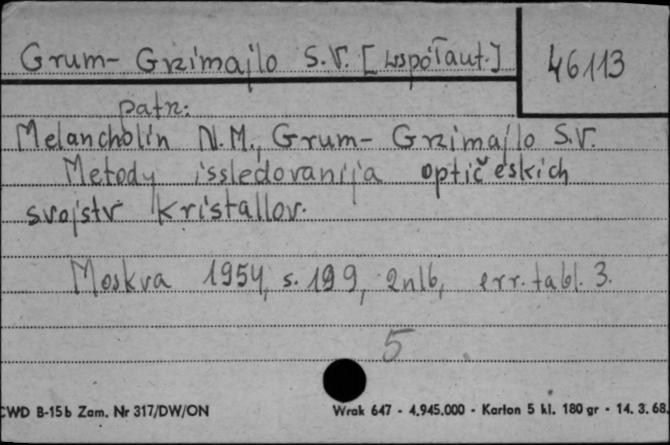 Grum- Grzimajlo S.V. [współaut.]
46113
patrz:
Melancholin N.M., Grum- Grzimajlo S.V.
Metody issledovanija optičeskich
svojstv kristallov.
Moskva 1954, s. 199, 2nlb, err. tabl. 3.
5
CWD B-15b Zam. Nr 317/DW/ON
Wrak 647 - 4.945.000 - Karton 5 kl. 180 gr - 14. 3. 68.